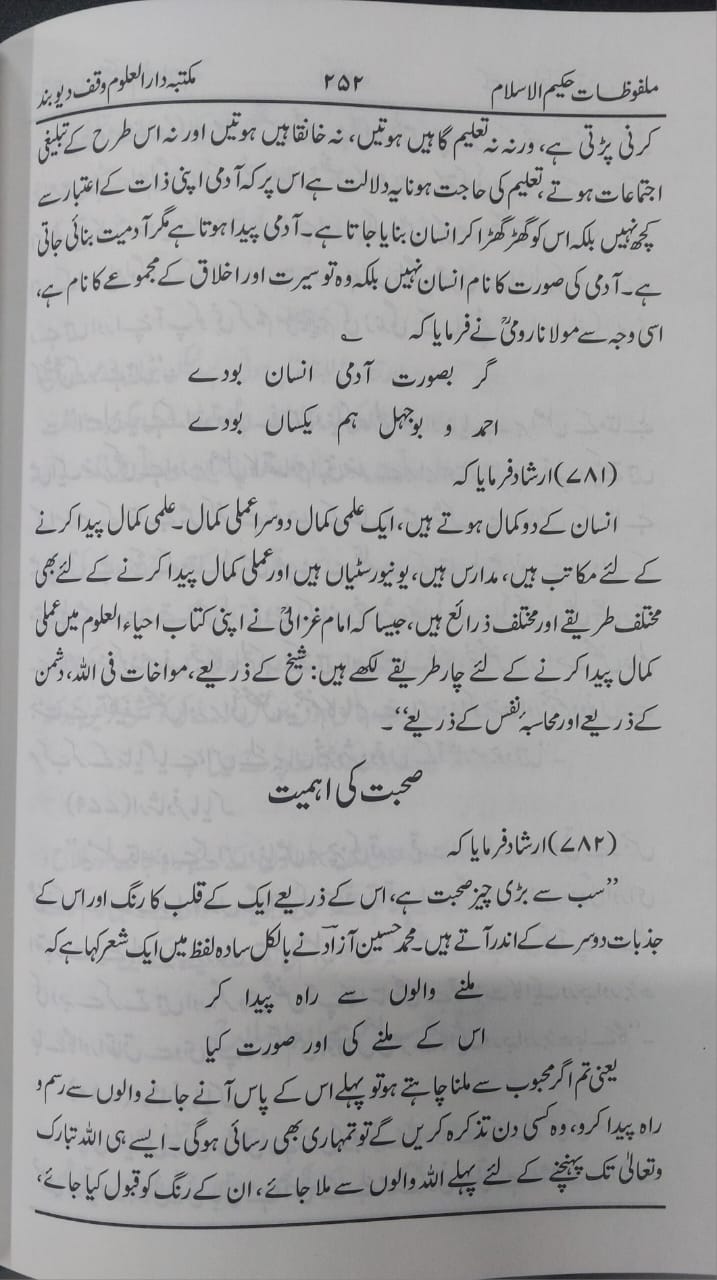 ملفوظات حکیم الاسلام ۲۵۲ مکتبہ دارالعلوم وقف دیوبند
کرنی پڑتی ہے، ورنہ نہ تعلیم گاہیں ہوتیں، نہ خانقاہیں ہوتیں اور نہ اس طرح کے تبلیغی
اجتماعات ہوتے، تعلیم کی حاجت ہونا یہ دلالت ہے اس پر کہ آدمی اپنی ذات کے اعتبار سے
کچھ نہیں بلکہ اس کو گھڑ گھڑا کر انسان بنایا جاتا ہے۔ آدمی پیدا ہوتا ہے مگر آدمیت بنائی جاتی
ہے۔ آدمی کی صورت کا نام انسان نہیں بلکہ وہ تو سیرت اور اخلاق کے مجموعے کا نام ہے،
اسی وجہ سے مولانا رومیؒ نے فرمایا کہ ؎
گر بصورت آدمی انسان بودے
احمد و بوجہل ہم یکساں بودے
(۷۸۱) ارشاد فرمایا کہ
انسان کے دو کمال ہوتے ہیں، ایک علمی کمال دوسرا عملی کمال۔ علمی کمال پیدا کرنے
کے لئے مکاتب ہیں، مدارس ہیں، یونیورسٹیاں ہیں اور عملی کمال پیدا کرنے کے لئے بھی
مختلف طریقے اور مختلف ذرائع ہیں، جیسا کہ امام غزالیؒ نے اپنی کتاب احیاء العلوم میں عملی
کمال پیدا کرنے کے لئے چار طریقے لکھے ہیں: شیخ کے ذریعے، مواخات فی اللہ، دشمن
کے ذریعے اور محاسبۂ نفس کے ذریعے‘‘۔
صحبت کی اہمیت
(۷۸۲) ارشاد فرمایا کہ
’’سب سے بڑی چیز صحبت ہے، اس کے ذریعے ایک کے قلب کا رنگ اور اس کے
جذبات دوسرے کے اندر آتے ہیں۔ محمد حسین آزادؔ نے بالکل سادہ لفظ میں ایک شعر کہا ہے کہ
ملنے والوں سے راہ پیدا کر
اس کے ملنے کی اور صورت کیا
یعنی تم اگر محبوب سے ملنا چاہتے ہو تو پہلے اس کے پاس آنے جانے والوں سے رسم و
راہ پیدا کرو، وہ کسی دن تذکرہ کریں گے تو تمہاری بھی رسائی ہوگی۔ ایسے ہی اللہ تبارک
وتعالیٰ تک پہنچنے کے لئے پہلے اللہ والوں سے ملا جائے، ان کے رنگ کو قبول کیا جائے،